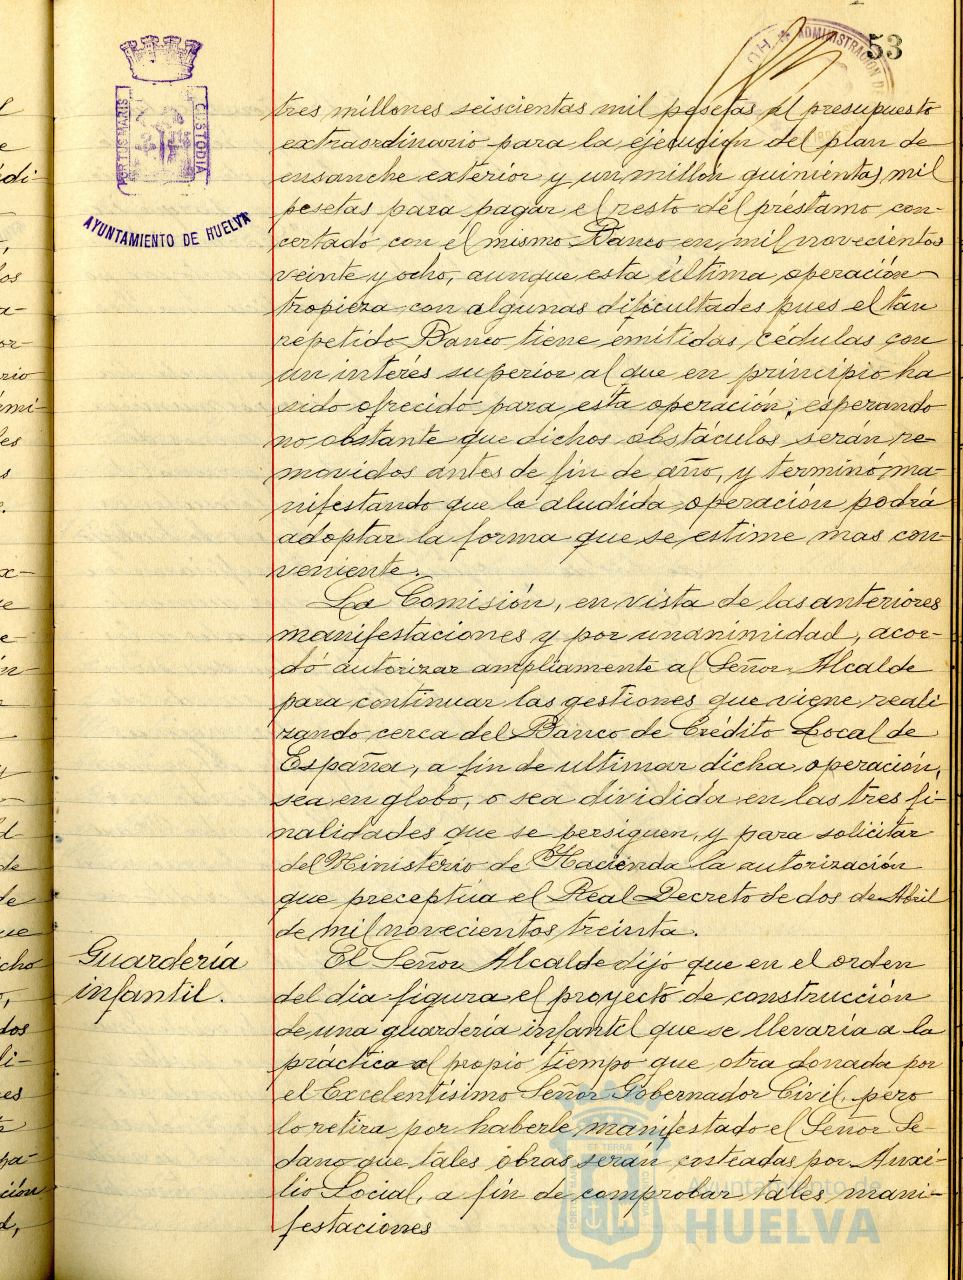 53
ADMINISTRACION D
PORTUS MARIS
CUSTODIA
AYUNTAMIENTO DE HUELVA
tres millones seiscientas mil pesetas al presupuesto
extraordinario para la ejecución del plan de
ensanche exterior y un millon quinientas mil
pesetas para pagar el resto del préstamo con-
certado con el mismo Banco en mil novecientos
veinte y ocho, aunque esta última operación
tropieza con algunas dificultades pues el tan
repetido Banco tiene emitidas cédulas con
un interés superior al que en principio ha
sido ofrecido para esta operación, esperando
no obstante que dichos obstáculos serán re-
movidos antes de fin de año, y terminó ma-
nifestando que la aludida operación podrá
adoptar la forma que se estime mas con-
veniente.
La Comisión, en vista de las anteriores
manifestaciones y por unanimidad, acor-
dó autorizar ampliamente al Señor Alcalde
para continuar las gestiones que viene reali
zando cerca del Banco de Crédito Local de
España, a fin de ultimar dicha operación,
sea en globo, o sea dividida en las tres fi-
nalidades que se persiguen, y para solicitar
del Ministerio de Hacienda la autorización
que preceptúa el Real Decreto de dos de Abril
de mil novecientos treinta.
Guardería
infantil.
El Señor Alcalde dijo que en el orden
del día figura el proyecto de construcción
de una guardería infantil que se llevaría a la
práctica al propio tiempo que otra donada por
el Excelentísimo Señor Gobernador Civil, pero
lo retira por haberle manifestado el Señor Se-
dano que tales obras serán costeadas por Auxi-
lio Social, a fin de comprobar tales mani-
festaciones
Ayuntamiento de
HUELVA